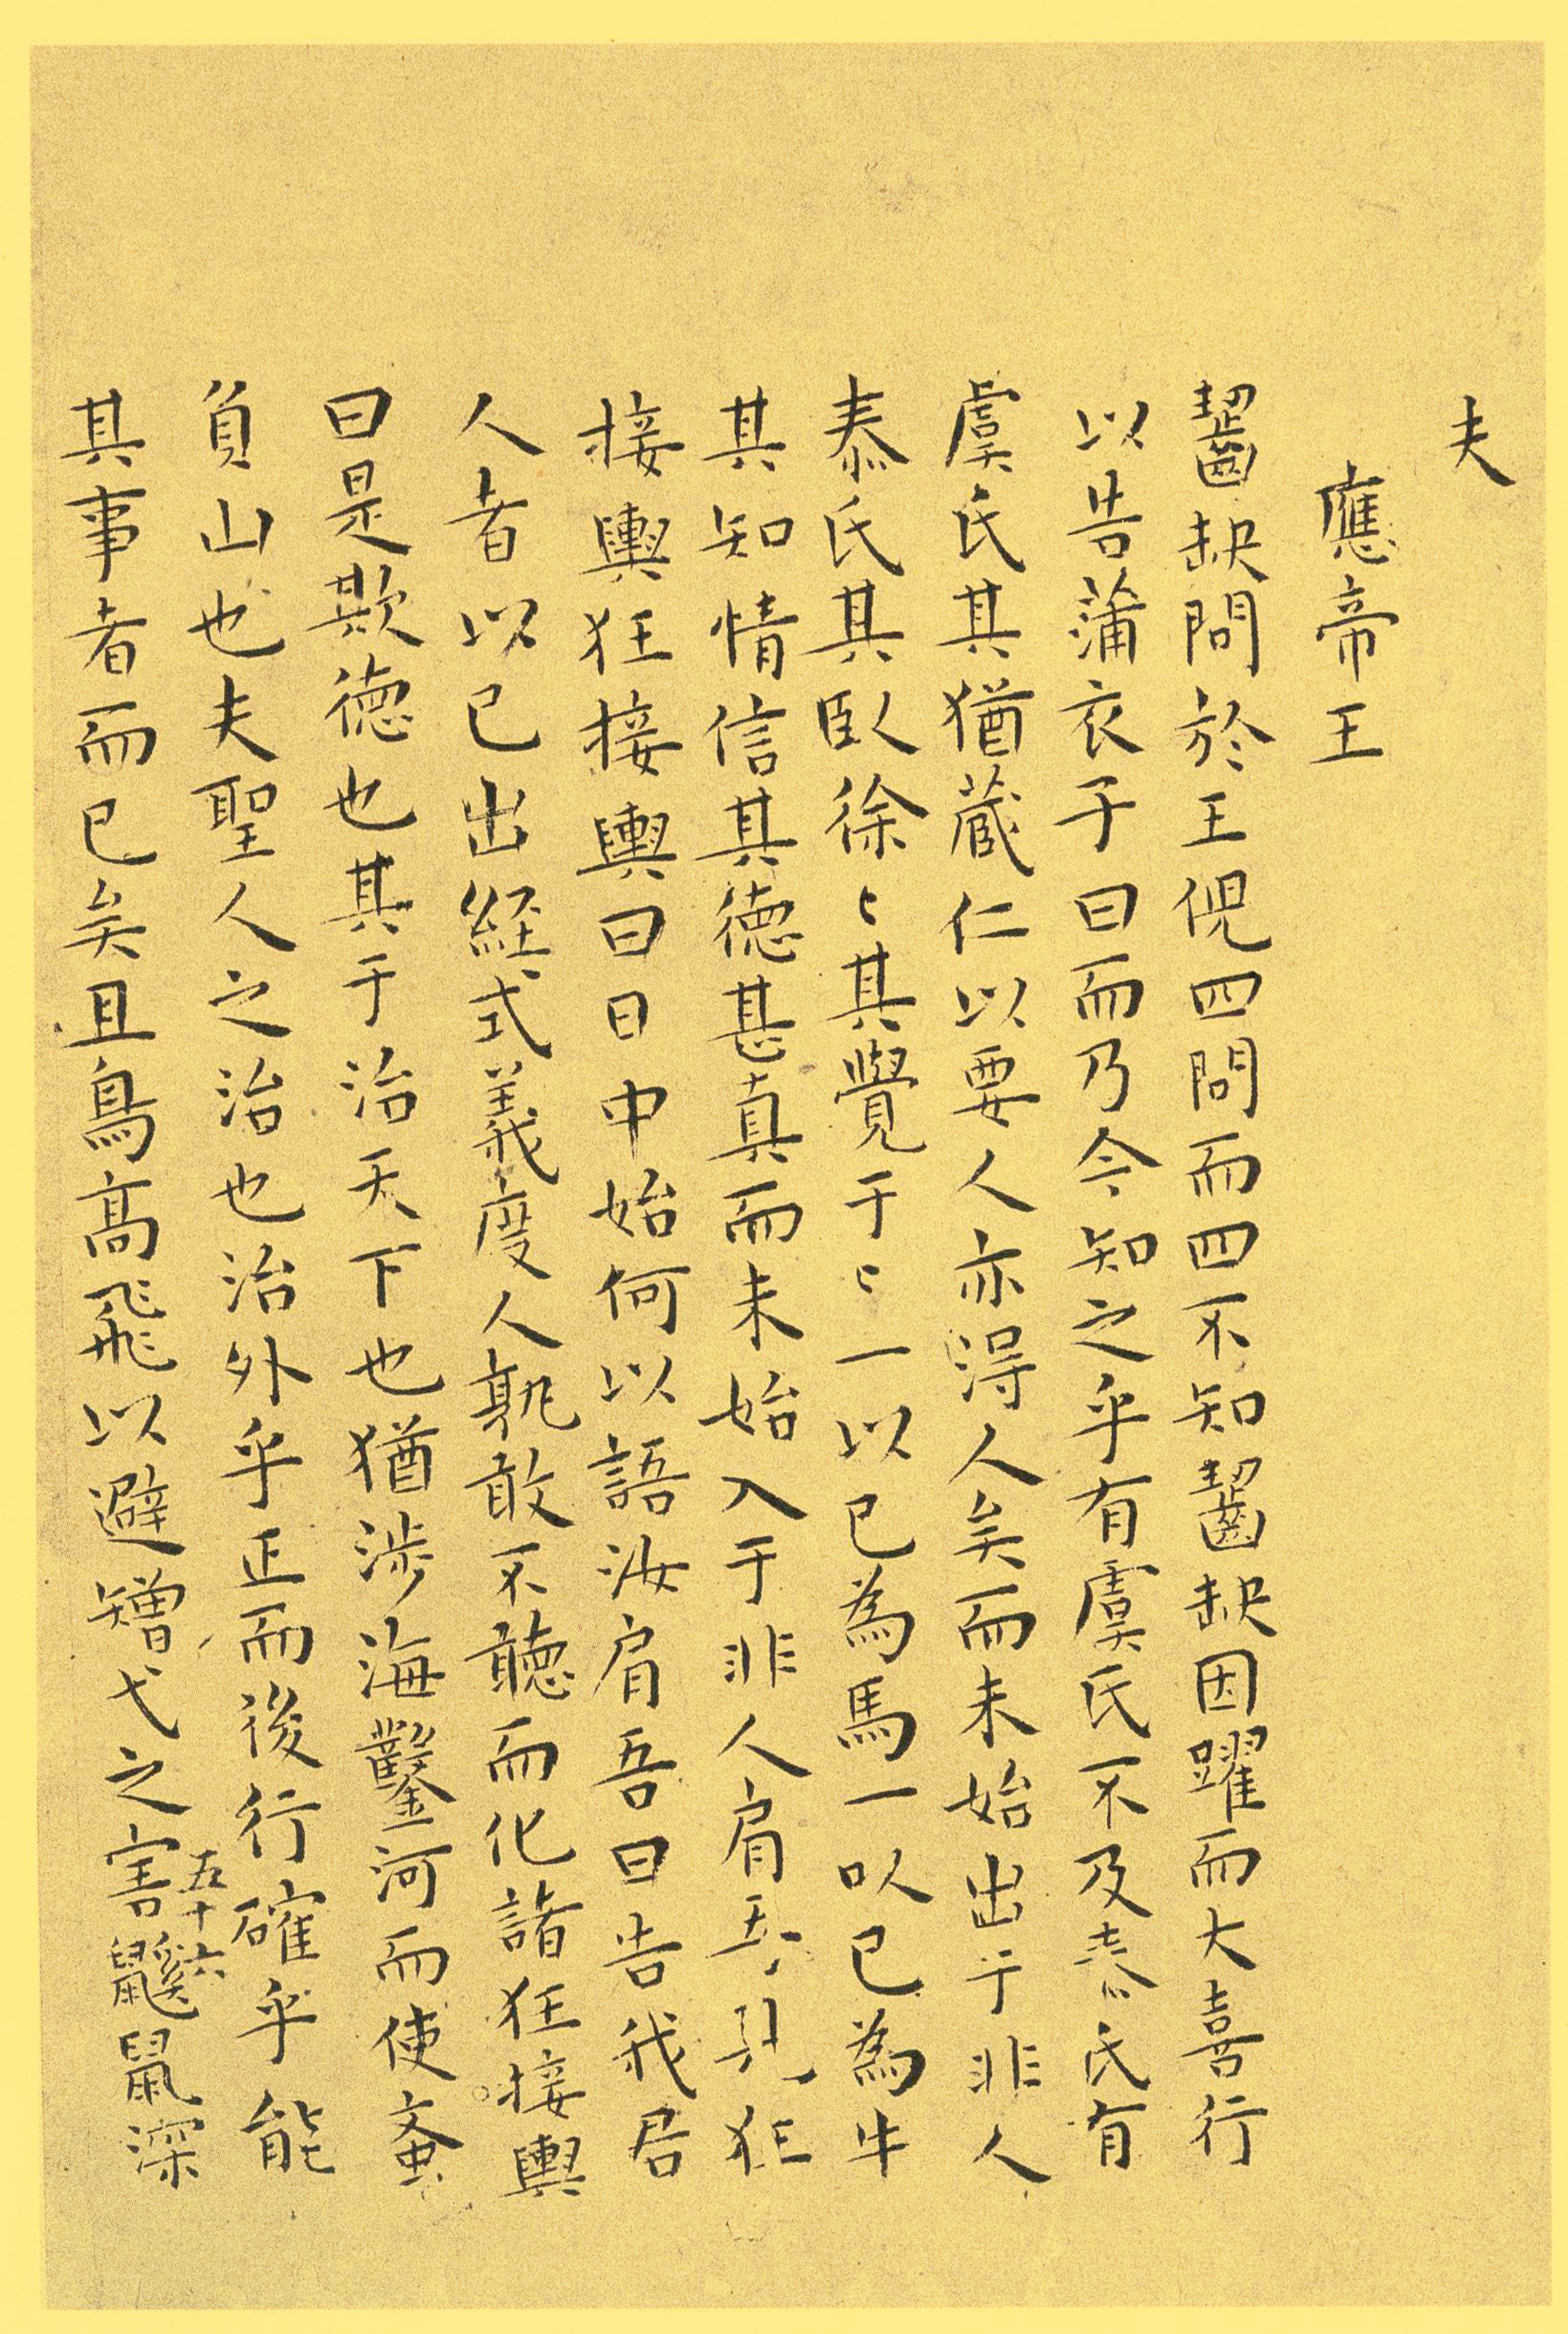 夫
應帝王
齧缺問於王倪四問而四不知齧缺因躍而大喜行
以告蒲衣子曰而乃今知之乎有虞氏不及泰氏有
虞氏其猶蔵仁以要人亦得人矣而未始出于非人
泰氏其臥徐〻其覺于〻一以己為馬一以己為牛
其知情信其德甚真而未始入于非人肩吾見狂
接輿狂接輿曰日中始何以語汝肩吾曰告我君
人者以己出経式義度人孰敢不聽而化諸狂接輿
曰是欺德也其于治天下也猶涉海鑿河而使蚉
負山也夫聖人之治也治外乎正而後行確乎能
其事者而已矣且鳥高飛以避矰弋之害鼷鼠深
五十六